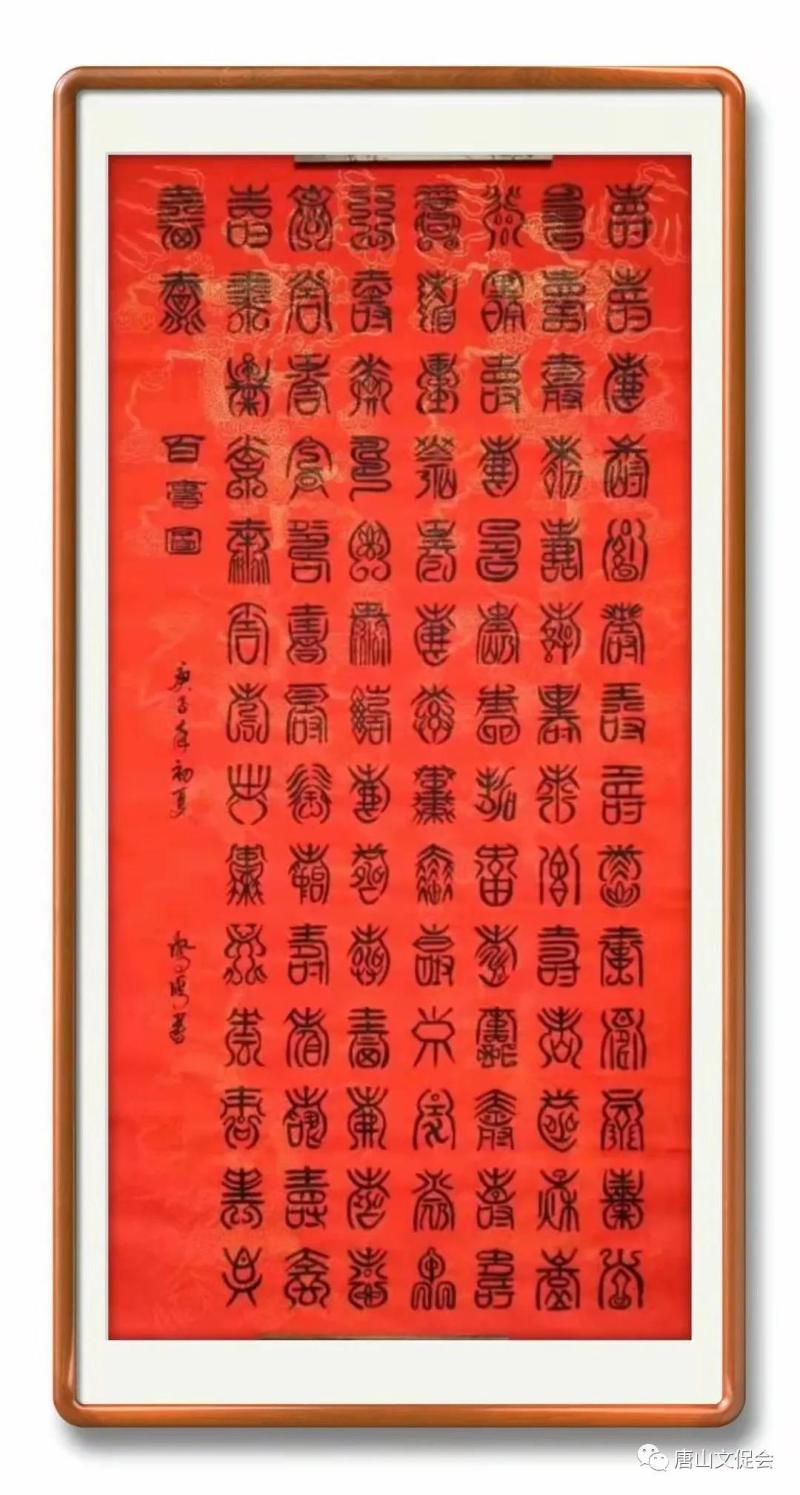 壽壽壽壽壽壽壽壽壽壽壽壽壽壽
壽壽壽壽壽壽壽壽壽壽壽壽壽壽
壽壽壽壽壽壽壽壽壽壽壽壽壽壽
壽壽壽壽壽壽壽壽壽壽壽壽壽壽
壽壽壽壽壽壽壽壽壽壽壽壽壽壽
壽壽壽壽壽壽壽壽壽壽壽壽壽壽
壽壽壽壽壽壽壽壽壽壽壽壽壽壽
壽壽
百壽圖
庚子年初夏
書
唐山文促会